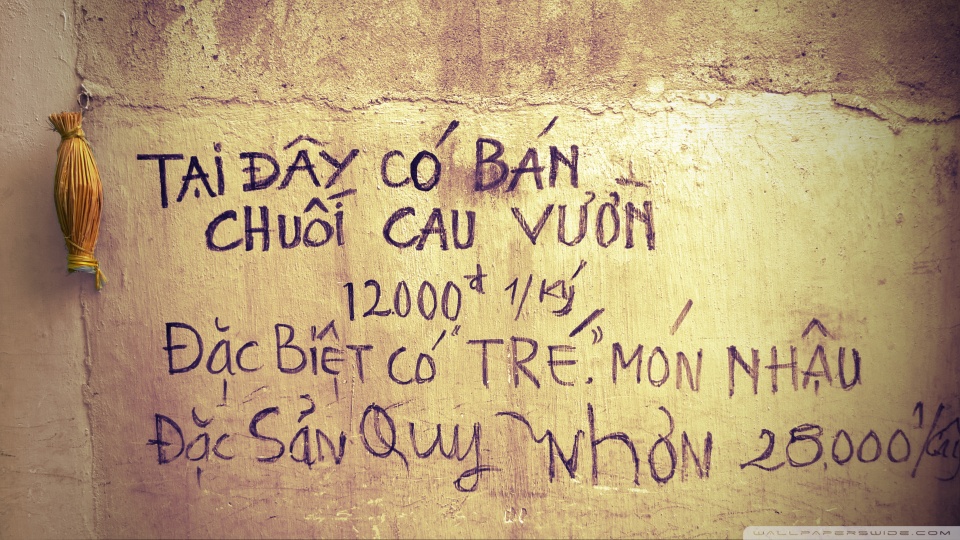 TẠI ĐÂY CÓ BÁN
CHUỐI CAU VƯỜN
12000đ 1/Ký
ĐẶC BIỆT CÓ "TRÉ". MÓN NHẬU
ĐẶC SẢN QUY NHƠN 28.000 1/Ký
WALLPAPERSWIDE.COM